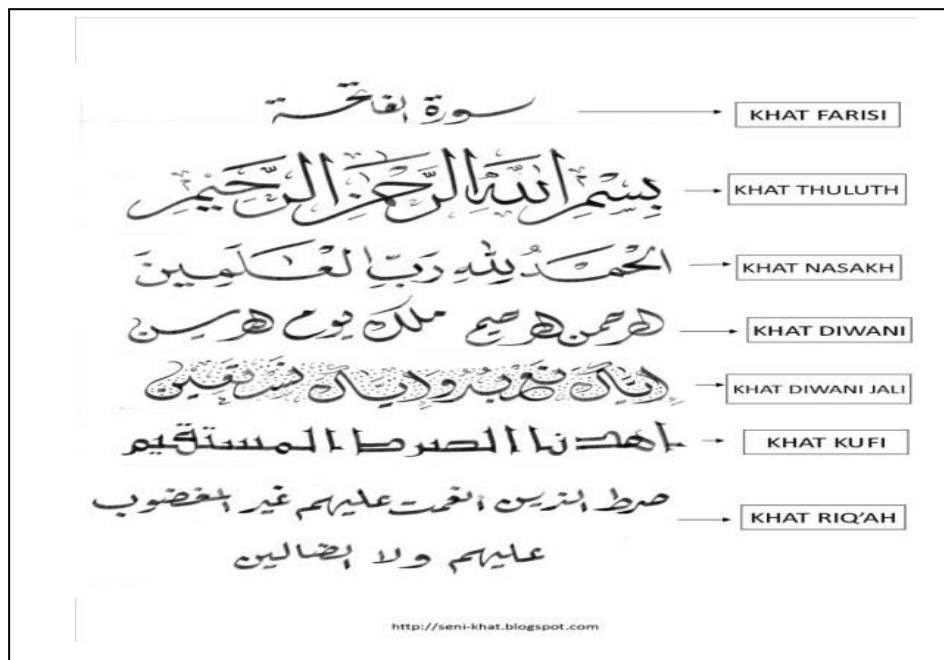 سورة الفاتحة
KHAT FARISI
بِسْمِ اللهِ الرَّحْمٰنِ الرَّحِيْمِ
KHAT THULUTH
الْحَمْدُ لِلّٰهِ رَبِّ الْعٰلَمِينَ
KHAT NASAKH
الرحمن الرحيم ملك يوم الدين
KHAT DIWANI
إِيَّاكَ نَعْبُدُ وَإِيَّاكَ نَسْتَعِينُ
KHAT DIWANI JALI
اهدنا الصرط المستقيم
KHAT KUFI
صرط الذين انعمت عليهم غير المغضوب
KHAT RIQ'AH
عليهم ولا الضالين
http://seni-khat.blogspot.com